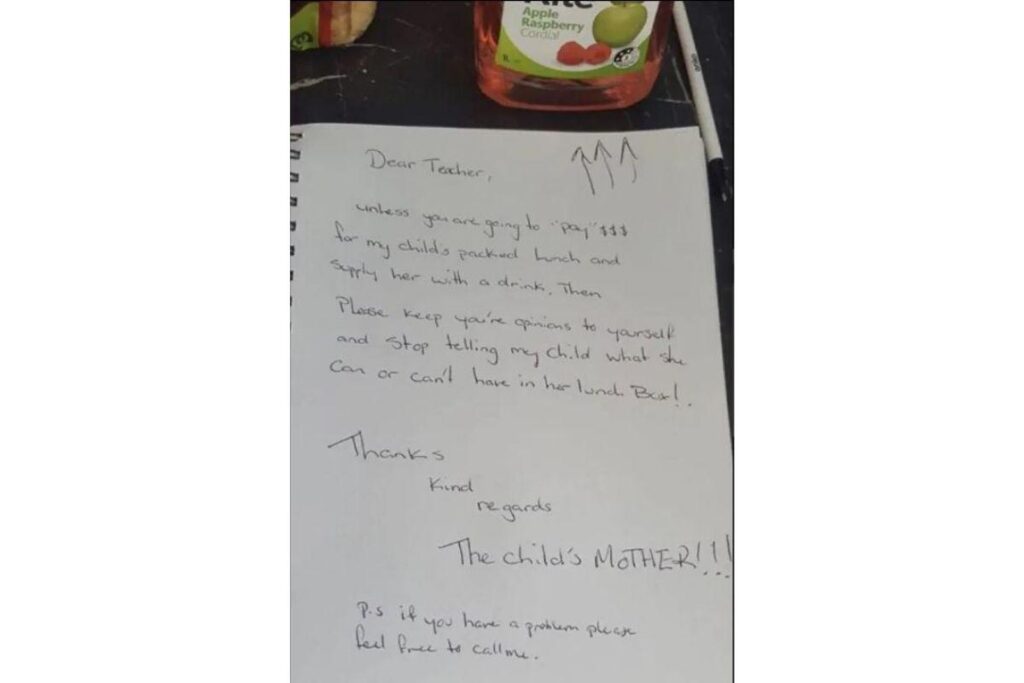 Apple
Raspberry
Cordial
1L
Dear Teacher,
unless you are going to "pay" $$$
for my child's packed lunch and
supply her with a drink. Then
Please keep you're opinions to yourself
and stop telling my child what she
can or can't have in her lunch Box!.
Thanks
Kind
regards
The child's MOTHER!!!
P.s if you have a problem please
feel free to call me.